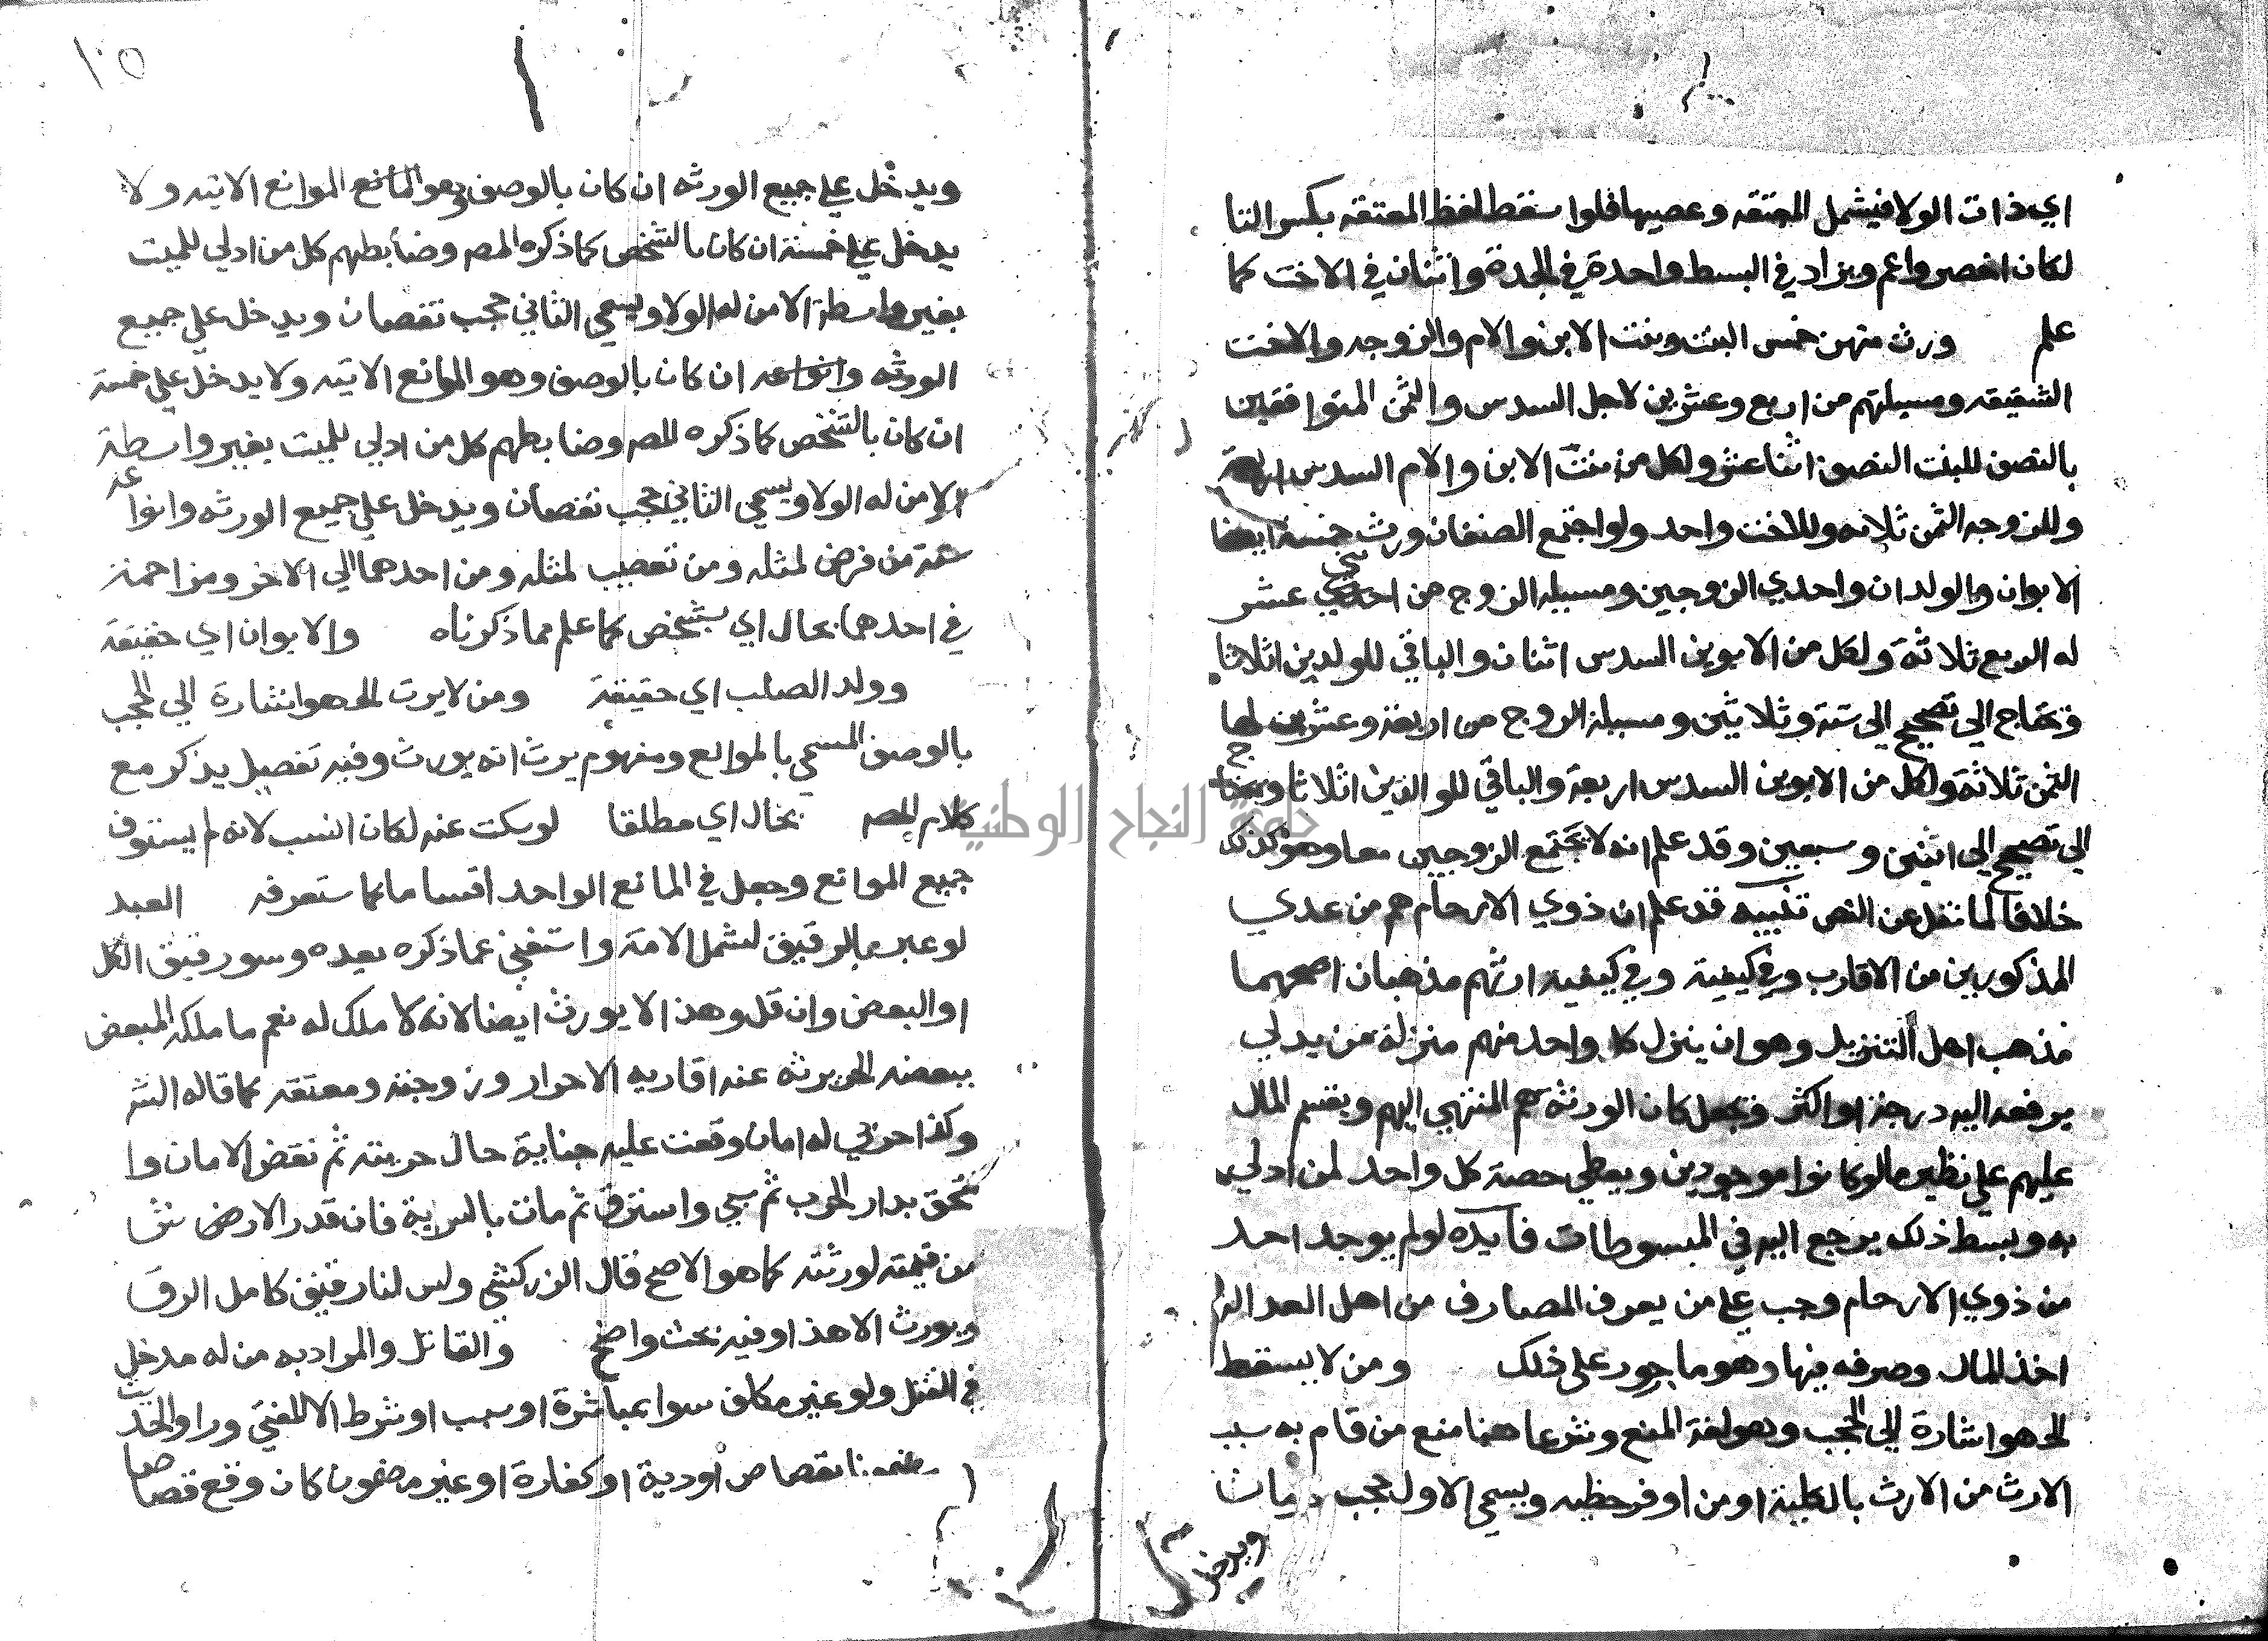 اي ذات الولا فيشمل المعتقه وعصبها فلوا سقط لفظ المعتقه بكسر التا
لكان اخصر واعم ويزاد في البسط واحدة في الجدة واثنتان في الاخت كما
علم ورث منهن خمس البنت وبنت الابن والام والزوجه والاخت
الشقيقه ومسيلتهم من اربع وعشرين لاجل السدس والثمن المتوافقين
بالنصف للبنت النصف اثنا عشر ولكل من بنت الابن والام السدس اربعة
وللزوجه الثمن ثلاثه وللاخت واحد ولو اجتمع الصنفان ورث خمسة ايضا
الابوان والولدان واحدي الزوجين ومسيلة الزوج من اثني عشر
له الربع ثلاثة ولكل من الابوين السدس اثنان والباقي للولدين اثلاثا
وتحتاج الي تصحيح الي ستة وثلاثين ومسيلة الزوج من اربعة وعشرين لها
الثمن ثلاثة ولكل من الابوين السدس اربعة والباقي للوالدين اثلاثا ويحتاج
الي تصحيح الي اثنين وسبعين وقد علم انه لا يجتمع الزوجين معا وهو كذلك
خلافا لما نقل عن النص تنبيه قد علم ان ذوي الارحام هم من عدي
المذكورين من الاقارب وفي كيفية وفي كيفيه ارثهم مذهبان اصحهما
مذهب اهل التنزيل وهو ان ينزل كل واحد منهم منزلة من يدلي
يرفعه اليه درجة او اكثر وتجعل كان الورثه هم المنتهي اليهم ويقسم المال
عليهم علي نظير مالو كانوا موجودين ويعطي حصة كل واحد لمن ادلي
به وبسط ذلك يرجع اليه في المبسوطات فايده لو لم يوجد احد
من ذوي الارحام وجب علي من يعرف المصارف من اهل العدالة
اخذ المال وصرفه فيها وهو ماجور علي ذلك ومن لا يسقط
الخ هو اشارة الي الحجب وهو لغة المنع وشرعا هنا منع من قام به سبب
الارث من الارث بالكلية او من اوفر حظيه ويسمي الاول حجب حرمان
ويدخل
١٠٥
ويدخل علي جميع الورثه ان كان بالوصف وهو المانع الموانع الاتيه ولا
يدخل علي خمسة ان كان بالشخص كما ذكره المصـ وضابطهم كل من ادلي للميت
بغير واسطة الا من له الولا ويسمي الثاني حجب نقصان ويدخل علي جميع
الورثه وانواعه ان كان بالوصف وهو الموانع الاتيه ولا يدخل علي خمسة
ان كان بالشخص كما ذكره المصـ وضابطهم كل من ادلي للميت بغير واسطة
الا من له الولا ويسمي الثاني حجب نقصان ويدخل علي جميع الورثه وانواعه
ستة من فرض لمثله ومن تعصيب لمثله ومن احدهما الي الاخر ومزاحمة
في احدهما بحال اي بشخص كما علم مما ذكرناه والابوان اي حقيقة
وولد الصلب اي حقيقة ومن لا يرث الخ هو اشارة الي الحجب
بالوصف المسمي بالموانع ومفهوم يرث انه يورث وفيه تفصيل يذكر مع
كلام المصـ بحال اي مطلقا لو سكت عنه لكان انسب لانه لم يستوف
جميع الموانع وجعل في المانع الواحد اقساما كما ستعرفه العبد
لو عبر بالرقيق لشمل الامة واستغني عما ذكره بعده وسو رقيق الكل
او البعض وان قل وهذا لا يورث ايضا لانه لا ملك له نعم ما ملكه المبعض
ببعضه الحر يرثه عنه اقاربه الاحرار وزوجته ومعتقه كما قاله الشـ
وكذا حربي له امان وقعت عليه جناية حال حريته ثم نقض الامان وا
لتحق بدار الحرب ثم سبي واسترق ثم مات بالسراية فان قدر الارش
من قيمته لورثته كما هو الاصح قال الزركشي وليس لنا رقيق كامل الرق
ويورث الا هذا وفيه بحث واضح والقاتل والمراد به من له مدخل
في القتل ولو غير مكلف سوا بمباشرة او سبب او شرط الا المفتي وراو الحديث
بقصاص او دية او كفارة او غير مضمون كان وقع قصاصا
جامعة النجاح الوطنية